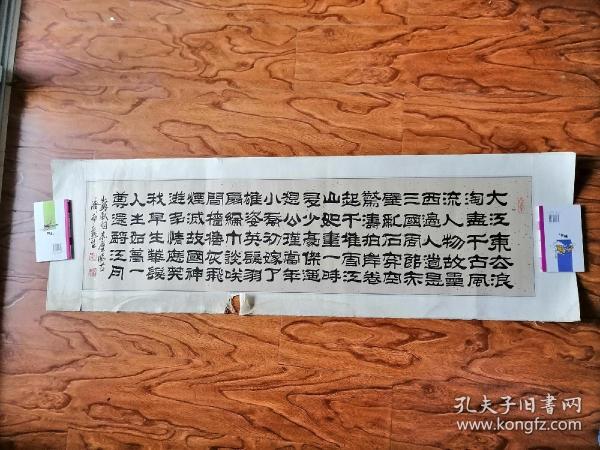 大江東去浪
淘盡千古風
流人物故壘
西邊人道是
三國周郎赤
壁亂石穿空
驚濤拍岸卷
起千堆雪江
山如畫一時
多少豪傑遙
想公瑾當年
小喬初嫁了
雄姿英發羽
扇綸巾談笑
間檣櫓灰飛
煙滅故國神
遊多情應笑
我早生華髮
人生如夢一
尊還酹江月
蘇軾詞赤壁懷古
孔夫子旧书网
www.kongfz.com